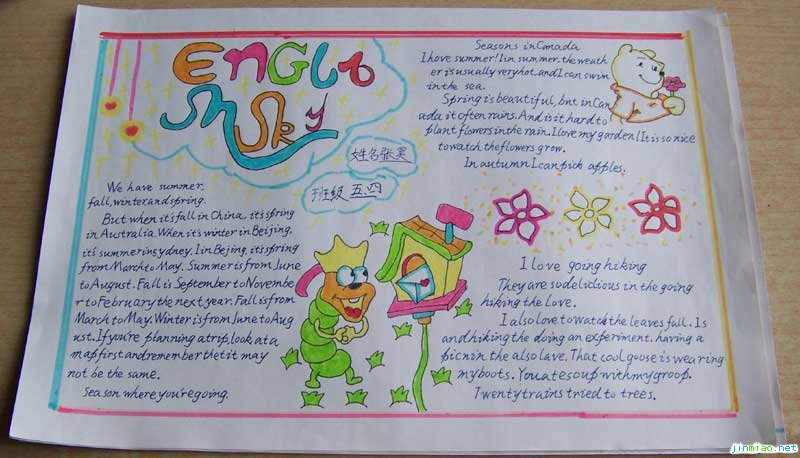 EnGLis
Sky
姓名张昊
班级五四
Seasons in Canada
I hove summer! Iin summer, the weath
er is usually very hot, and I can swim
in the sea.
Spring is beautiful, bnt in Can
ada it often rains. And is it hard to
plant flowers in the rain. I love my garden! It is so nice
to watch the flowers grow.
In autumn I can pick apples.
We have summer,
fall, winter, and spring.
But when it's fall in China, it's spring
in Australia. When it's winter in Beijing,
it's summer in sydney. Iin Bejing, it's spring
from March to May. Summer is from June
to August. Fall is September to Novembe
r to February the next year. Fall is from
March to May. Winter is from June to Aug
ust. If you're planning a trip, look at a
map first and remember thet it may
not be the same.
Season where you're going.
I love going hiking
They are so delicious in the going
hiking the love.
I also love to watch the leaves fall. Is
and hiking the doing an experiment. having a
picnin the also lave. That cool goose is wearing
my boots. You ate soup with my groop.
Twenty trains tried to trees.
jinmiao.net